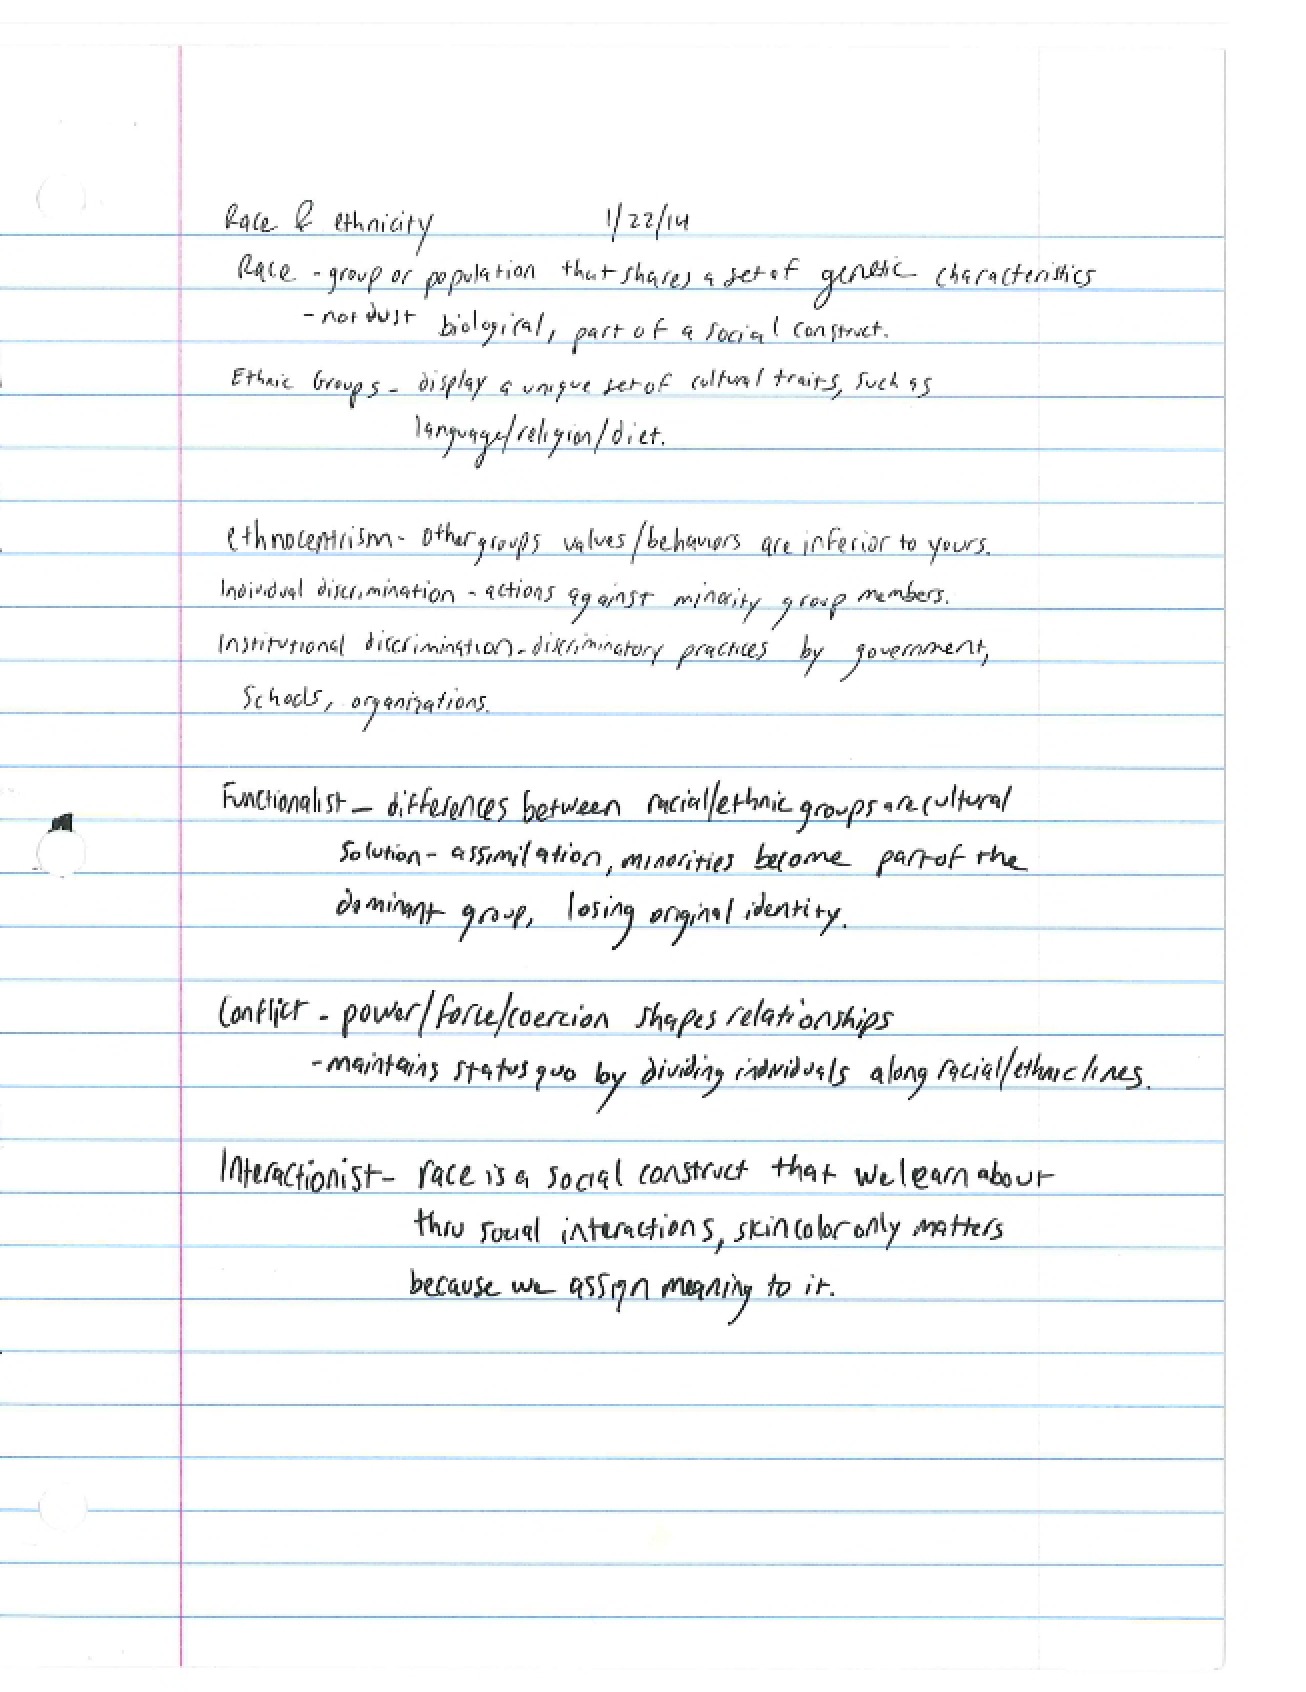 Race & ethnicity 1/22/14
Race - group or population that shares a set of genetic characteristics
- not just biological, part of a social construct.
Ethnic Groups - display a unique set of cultural traits, such as
language/religion/diet.
ethnocentrism - other groups values/behaviors are inferior to yours.
Individual discrimination - actions against minority group members.
Institutional discrimination - discriminatory practices by government,
Schools, organizations.
Functionalist - differences between racial/ethnic groups are cultural
solution - assimilation, minorities become part of the
dominant group, losing original identity.
Conflict - power/force/coercion shapes relationships
- maintains status quo by dividing individuals along racial/ethnic lines.
Interactionist - race is a social construct that we learn about
thru social interactions, skin color only matters
because we assign meaning to it.